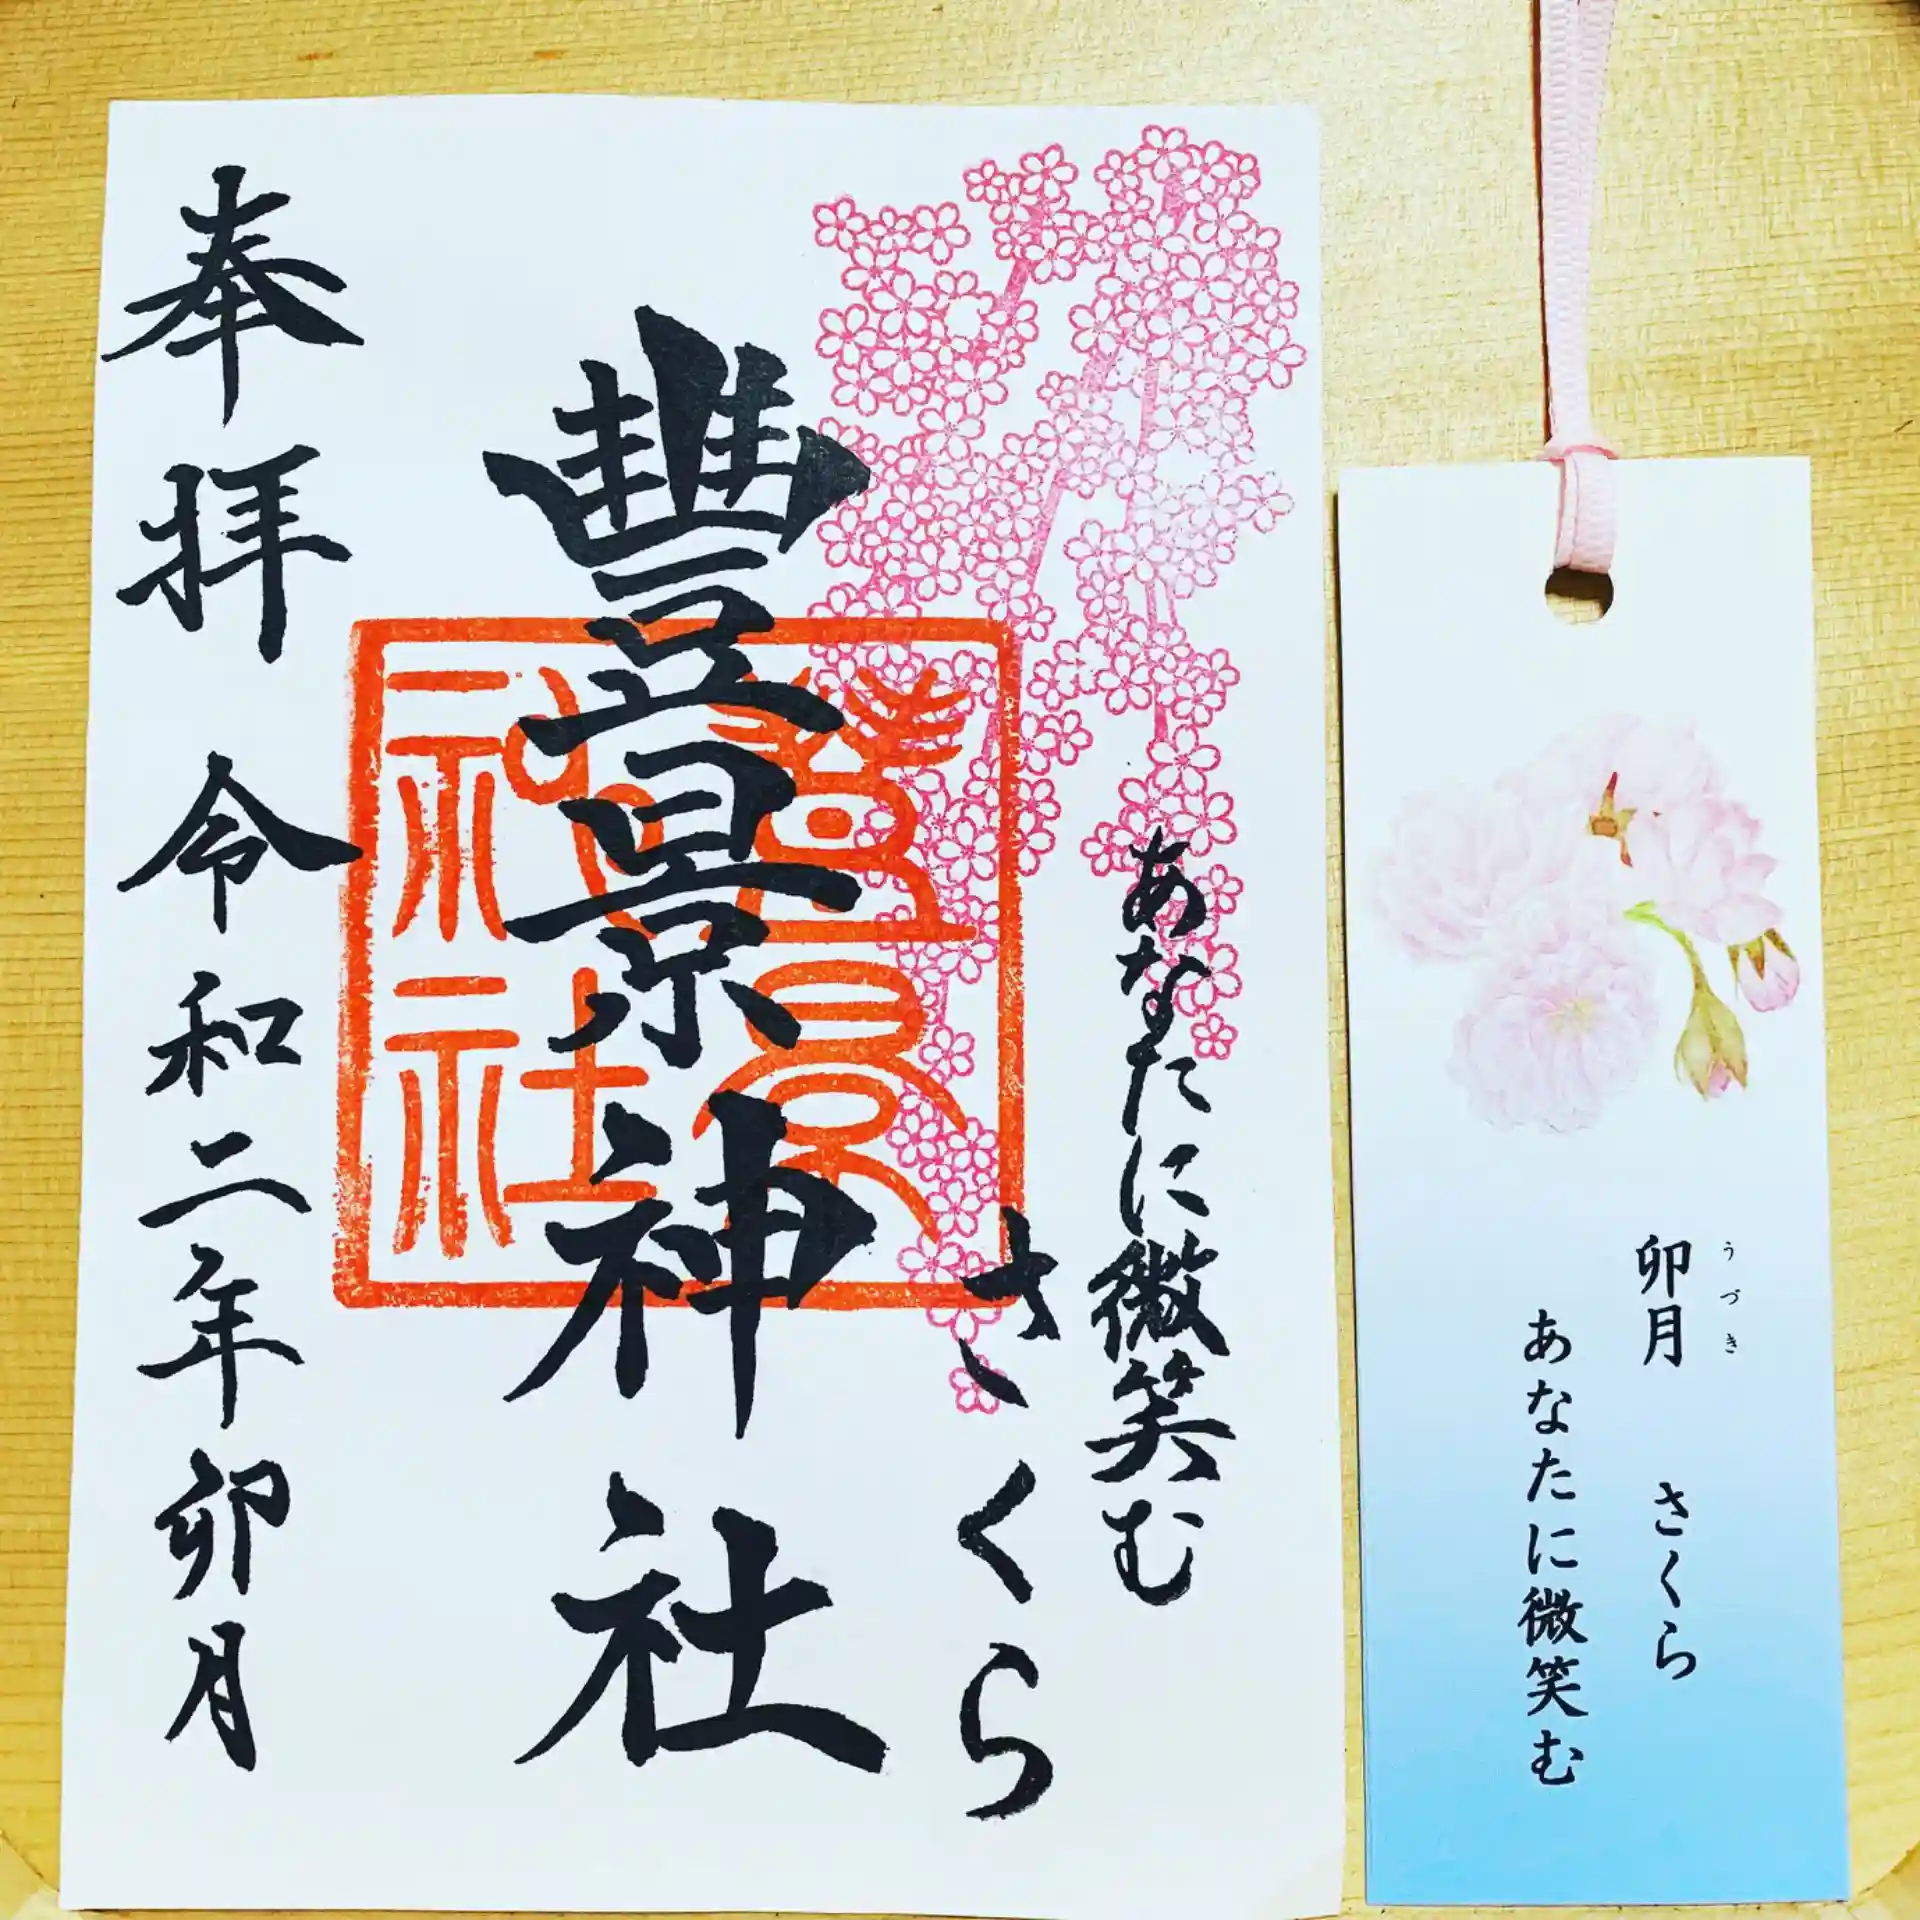 あなたに微笑む
さくら
豐景神社
豊景神社
奉拝 令和二年卯月
卯月 さくら
うづき
あなたに微笑む